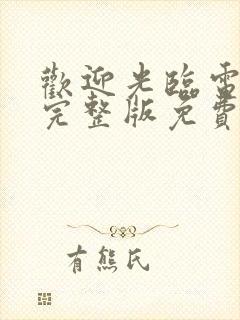 歡迎光臨電
完整版免費
有熊氏